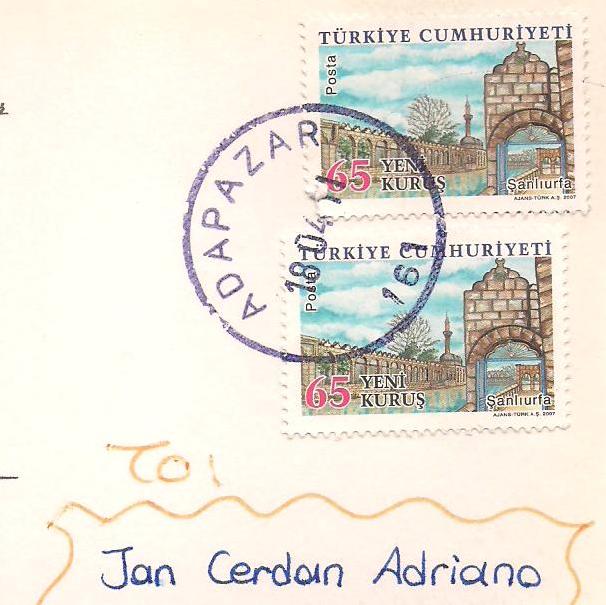 TÜRKİYE CUMHURİYETİ
Posta
65 YENİ
KURUŞ
Şanlıurfa
AJANS-TÜRK A.Ş. 2007
ADAPAZARI
18.04.11
161
TÜRKİYE CUMHURİYETİ
Posta
65 YENİ
KURUŞ
Şanlıurfa
AJANS-TÜRK A.Ş. 2007
TO:
Jan Cerdan Adriano